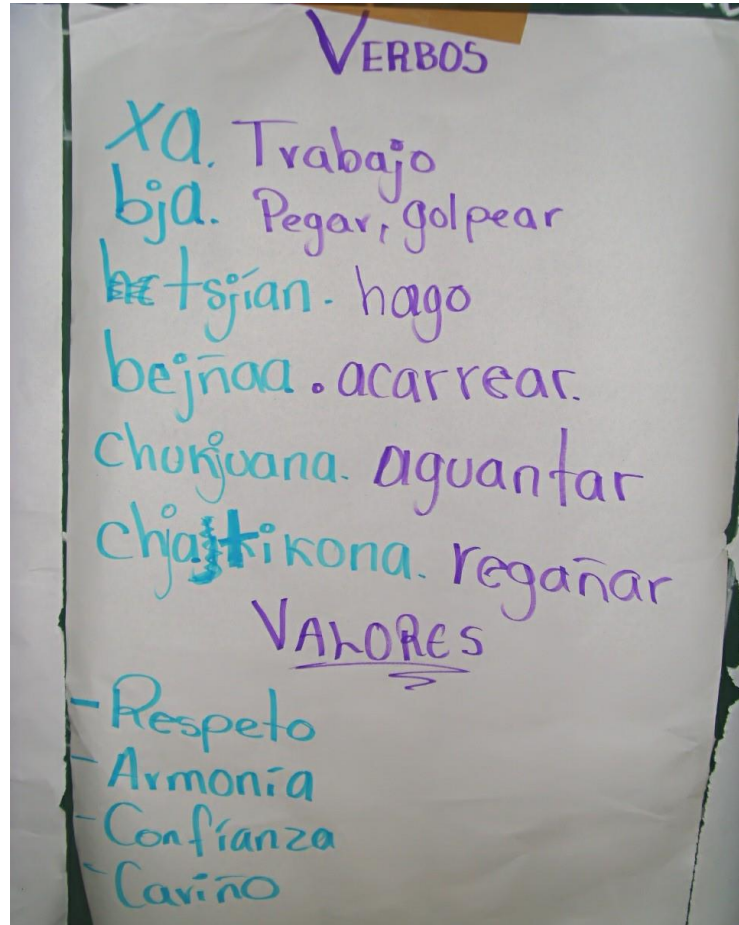 VERBOS
xa. Trabajo
bja. Pegar, golpear
tsjían. hago
bejñaa. acarrear.
chunjuana. aguantar
chjatikona. regañar
VALORES
- Respeto
- Armonía
- Confianza
- Cariño